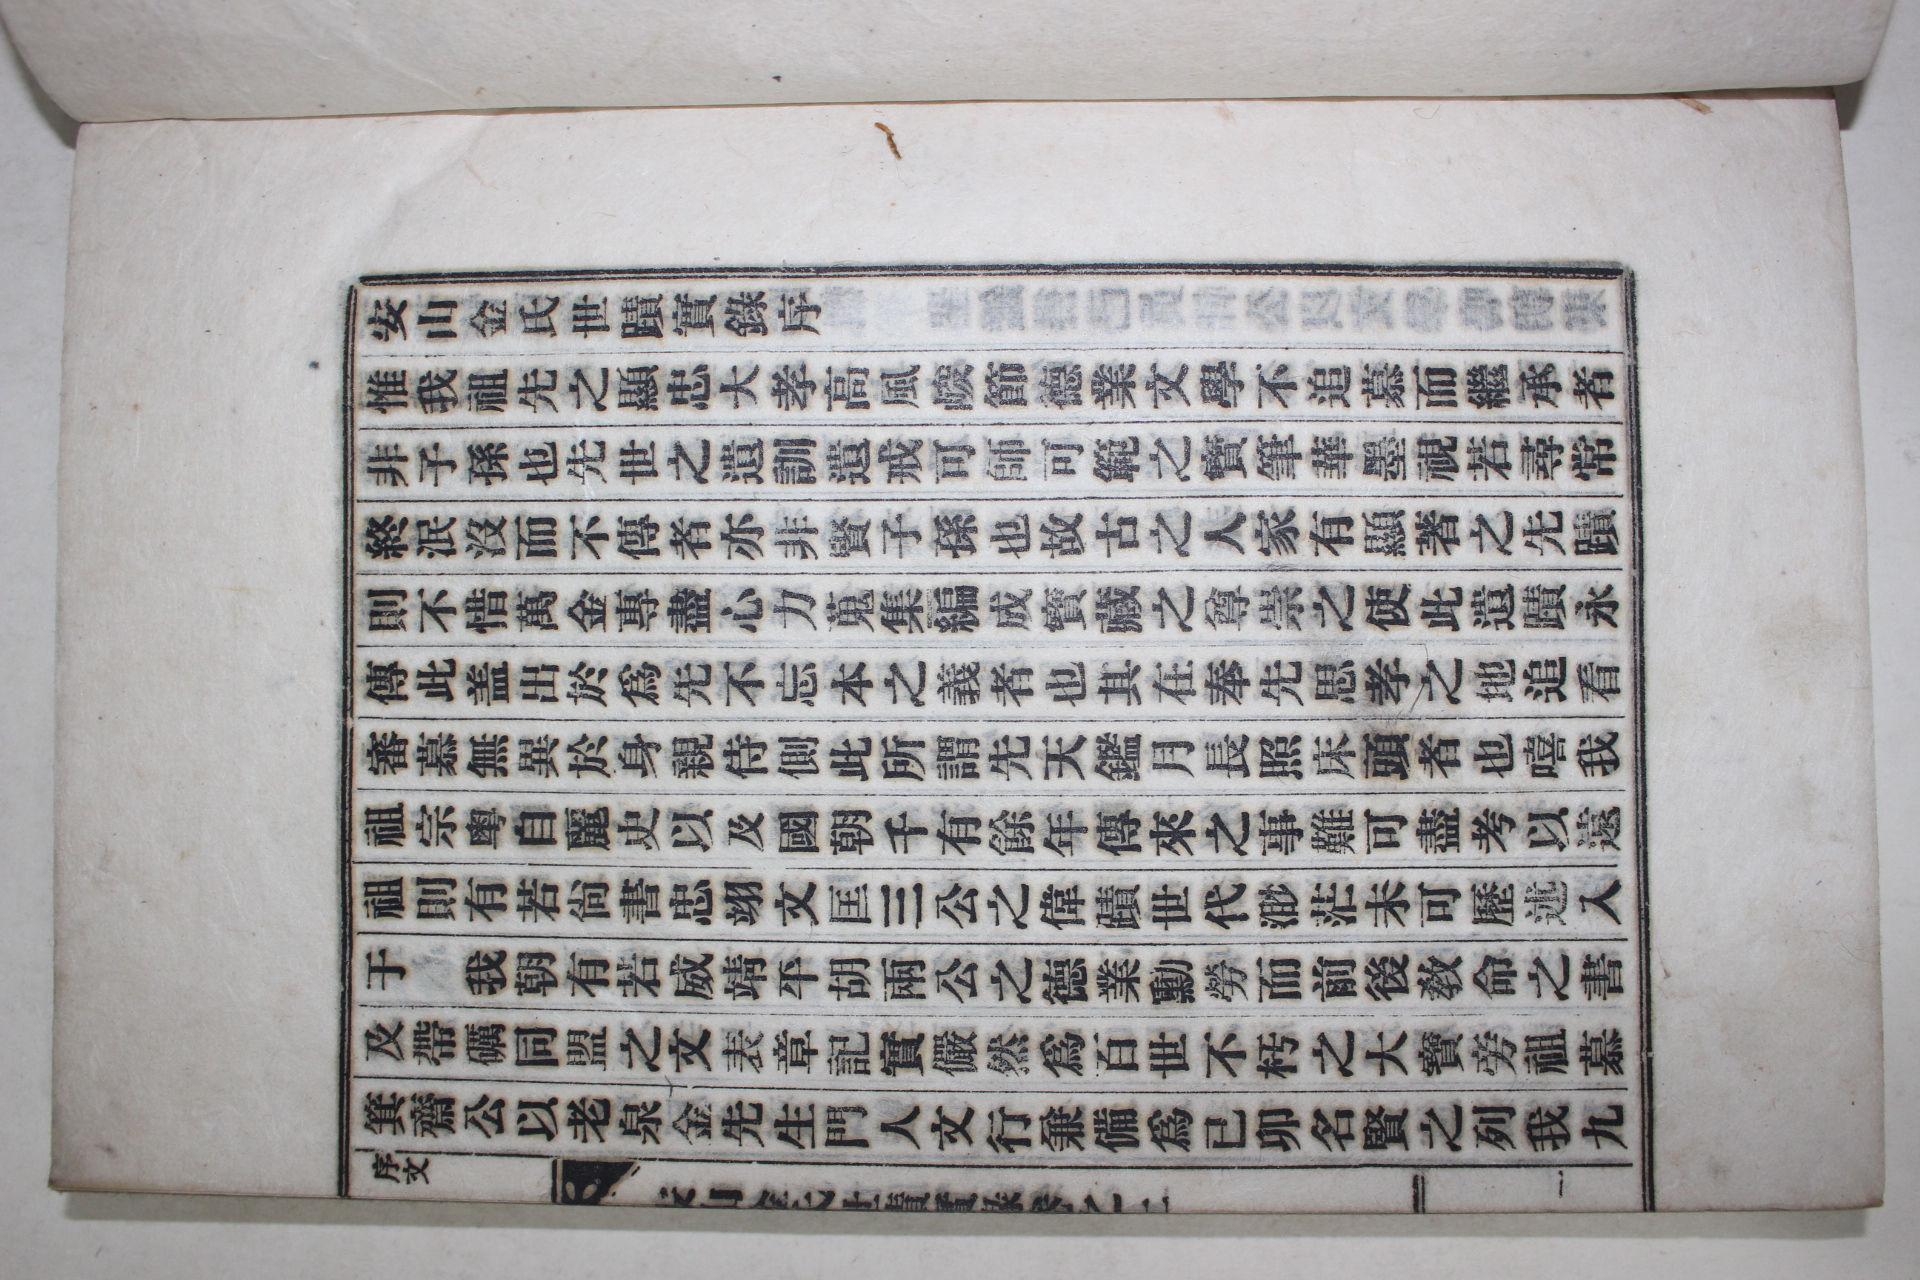 安山金氏世蹟實錄序
惟我祖先之顯忠大孝高風峻節德業文學不追慕而繼承者
非子孫也先世之遺訓遺戒可師可範之寶筆華墨視若尋常
終泯沒而不傳者亦非賢子孫也故古之人家有顯著之先蹟
則不惜萬金專盡心力蒐集編成寶藏之尊崇之使此遺蹟永
傳此盖出於爲先不忘本之義者也其在奉先思孝之地追看
審慕無異於身親侍側此所謂先天鑑月長照床頭者也嘻我
祖宗粤自麗史以及國朝千有餘年傳來之事難可盡考以遠
祖則有若尙書忠翊文匡三公之偉蹟世代渺茫未可歷述入
于 我朝有若威靖平胡兩公之德業勳勞而前後敎命之書
及帶礪同盟之文表章記實儼然爲百世不朽之大寶旁祖慕
箕齋公以老泉金先生門人文行兼備爲已卯名賢之列我九
序文
一